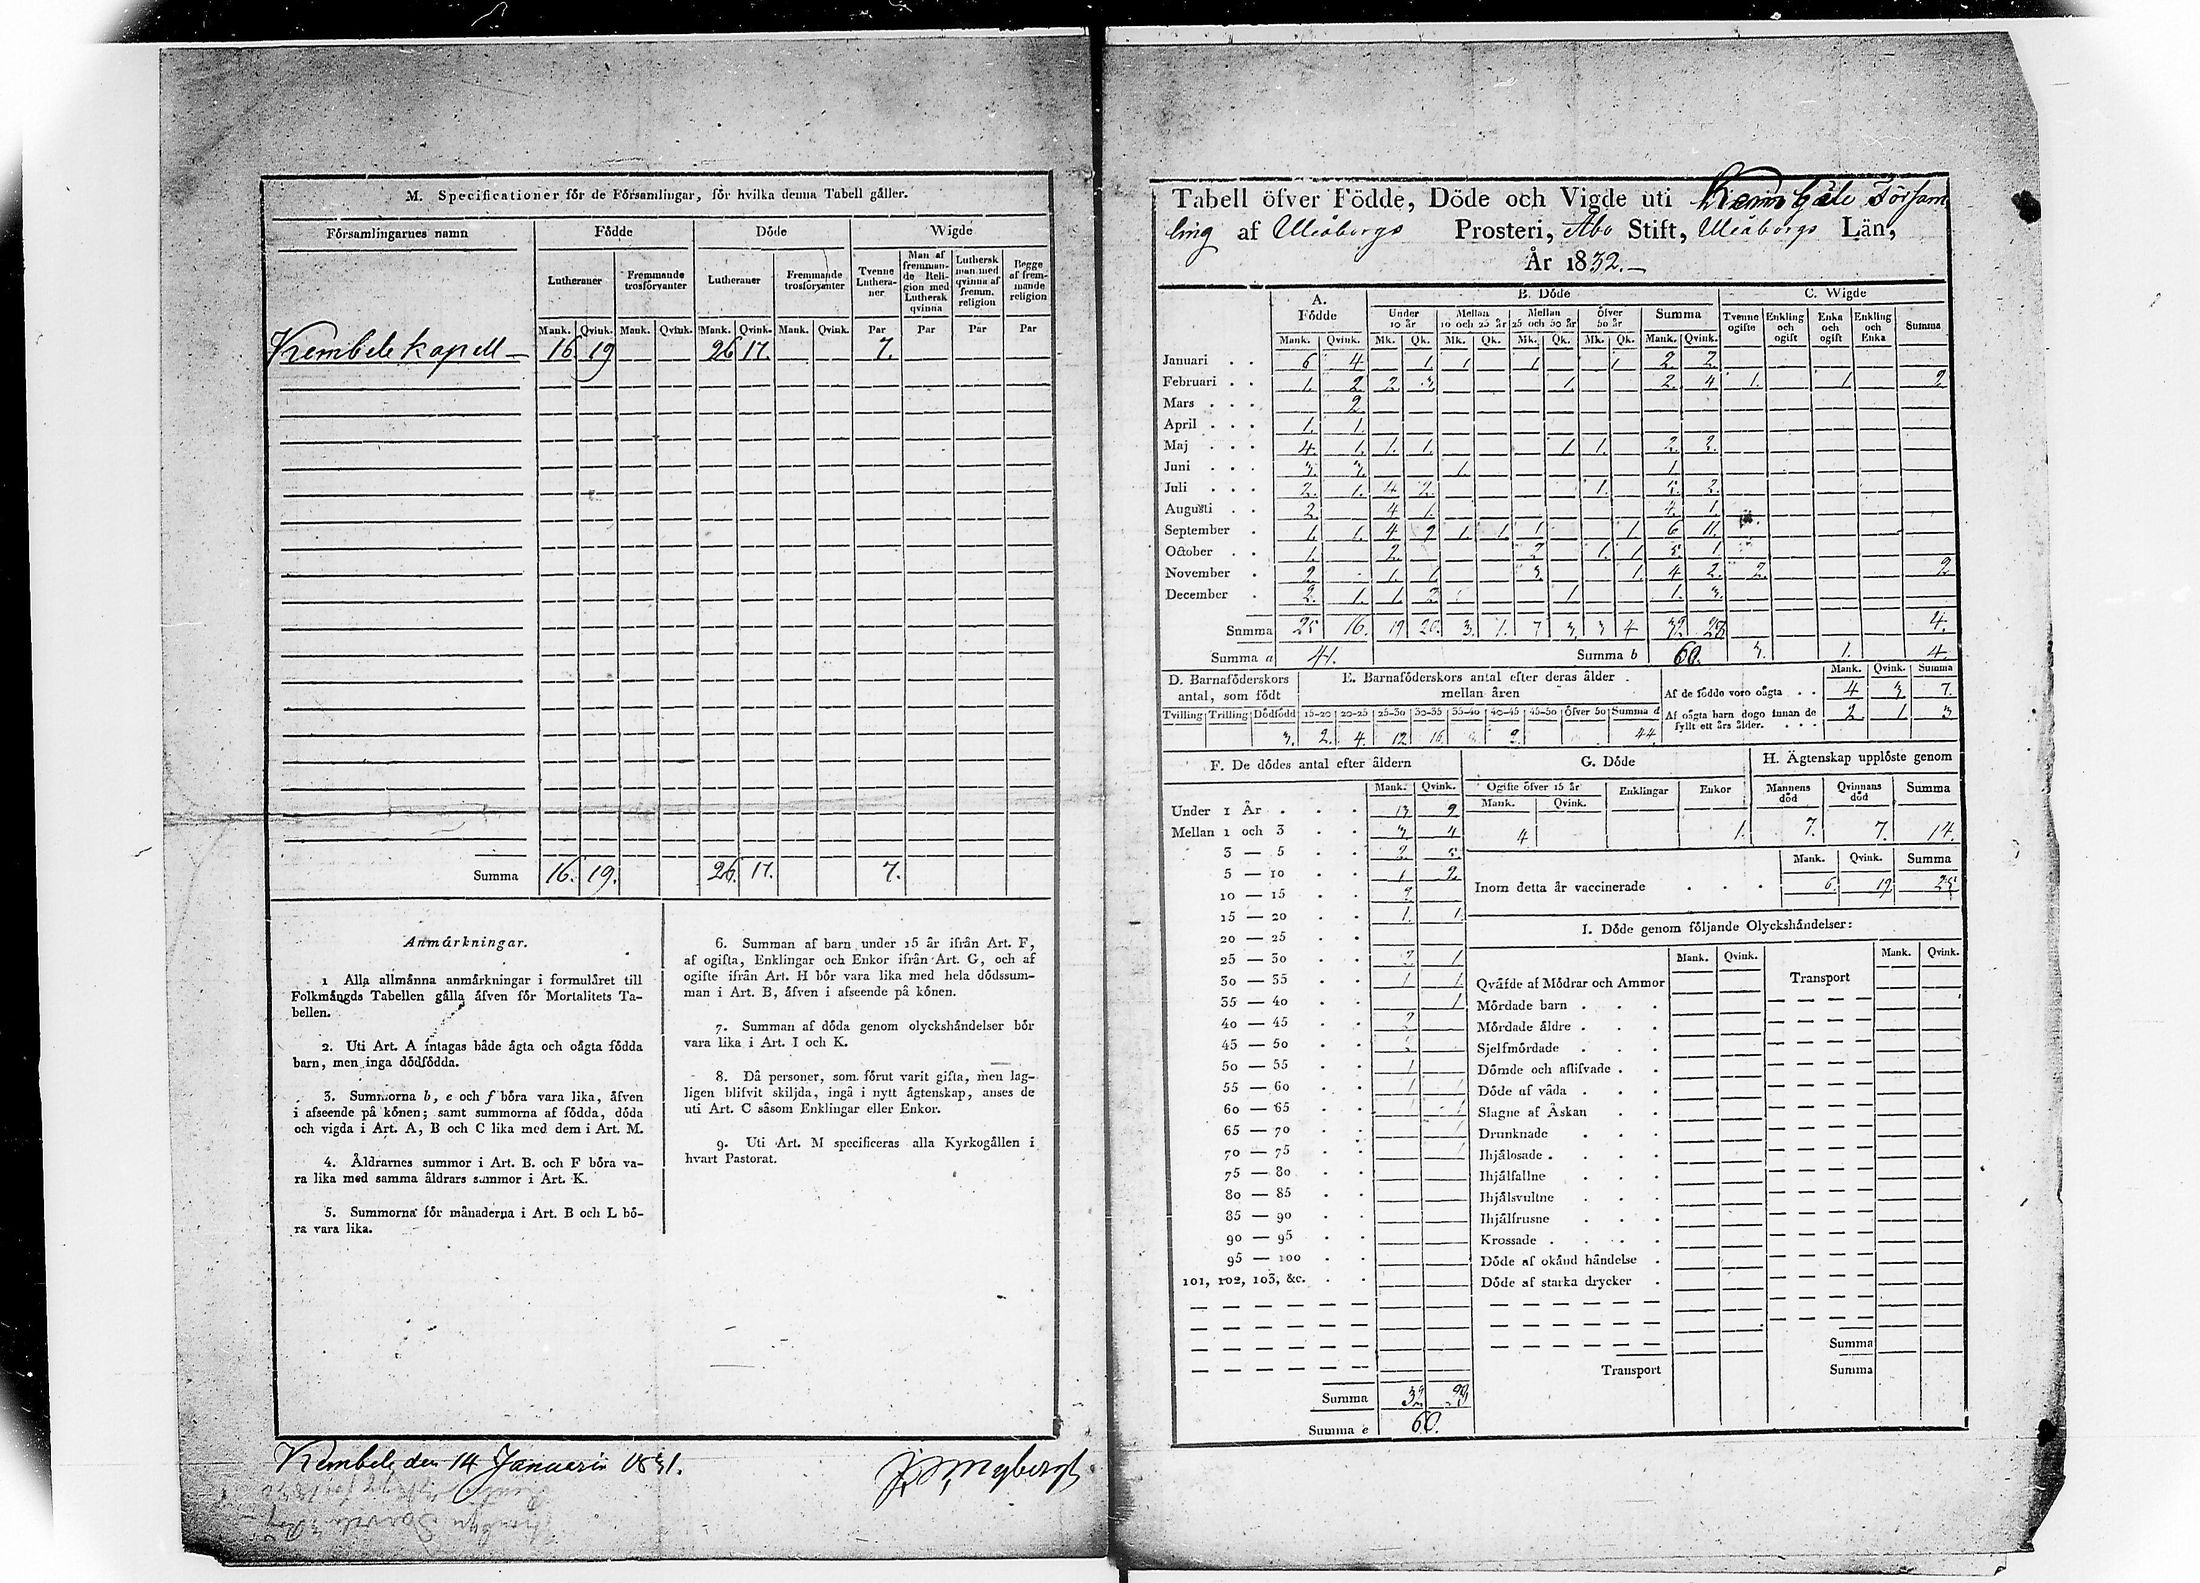 M. Specificationer för de Församlingar, för hvilka denna Tabell gäller.
Församlingarnes namn Födde Döde Wigde
Lutheraner Fremmande trosförvanter Lutheraner Fremmande trosförvanter Tvenne Lutheraner Man af fremmande Religion med Luthersk qvinna Luthersk man med qvinna af fremm. religion Begge af fremmande religion
Mank. Qvink. Mank. Qvink. Mank. Qvink. Mank. Qvink. Par Par Par Par
Kembele kapell 16 19 26 17. 7.
Summa 16. 19. 26. 17. 7.
Anmärkningar.
1 Alla allmänna anmärkningar i formuläret till
Folkmängds Tabellen gälla äfven för Mortalitets Ta-
bellen.
2. Uti Art. A intagas både ägta och oägta födda
barn, men inga dödfödda.
3. Summorna b, e och f böra vara lika, äfven
i afseende på könen; samt summorna af födda, döda
och vigda i Art. A, B och C lika med dem i Art. M.
4. Åldrarnes summor i Art. B. och F böra va-
ra lika med samma åldrars summor i Art. K.
5. Summorna för månaderna i Art. B och L bö-
ra vara lika.
6. Summan af barn under 15 år ifrån Art. F,
af ogifta, Enklingar och Enkor ifrån Art. G, och af
ogifte ifrån Art. H bör vara lika med hela dödssum-
man i Art. B, äfven i afseende på könen.
7. Summan af döda genom olyckshändelser bör
vara lika i Art. I och K.
8. Då personer, som förut varit gifta, men lag-
ligen blifvit skiljda, ingå i nytt ägtenskap, anses de
uti Art. C såsom Enklingar eller Enkor.
9. Uti Art. M specificeras alla Kyrkogällen i
hvart Pastorat.
Kembele den 14 Januarii
Tabell öfver Födde, Döde och Vigde uti Församling
af Uleåborgs Prosteri, Åbo Stift, Uleåborgs Län,
År 1832.
A. Födde B. Döde C. Wigde
Under 10 år Mellan 10 och 25 år Mellan 25 och 50 år Öfver 50 år Summa Tvenne ogifte Enkling och ogift Enka och ogift Enkling och Enka Summa
Mank. Qvink. Mk. Qk. Mk. Qk. Mk. Qk. Mk. Qk. Mank. Qvink.
Januari 6 4 1 1 1 1 2. 2.
Februari 1. 2 2. 3 1 2 4 1. 1. 2
Mars 2
April 1. 1.
Maj 4. 1. 1. 1. 1 1. 2. 2.
Juni 3. 3. 1. 1.
Juli 2. 1. 4 2. 1. 5. 2.
Augusti 2. 4 1. 4. 1.
September 1. 1. 4 9 1. 1. 1 1 6 11.
October 1. 2. 2 1. 1 5. 1.
November 2 1. 1. 3 1. 4 2. 2. 2
December 2. 1. 1. 2 1 1. 3.
Summa 25 16. 19 20. 3. 1. 7 3. 3 4 32 28 4.
Summa a 41. Summa b 60. 3. 1. 4.
D. Barnaföderskors antal, som födt
Tvilling Trilling Dödfödd
3.
E. Barnaföderskors antal efter deras ålder mellan åren
15-20 20-25 25-30 30-35 35-40 40-45 45-50 Öfver 50 Summa d
2. 4. 12 16 9. 44.
Mank. Qvink. Summa
Af de födde voro oägta 4 3 7.
Af oägta barn dogo innan de fyllt ett års ålder. 2 1 3
F. De dödes antal efter åldern
Mank. Qvink.
Under 1 År 13 9
Mellan 1 och 3 3 4
3 — 5 2 5
5 — 10 1 2
10 — 15 2
15 — 20 1. 1.
20 — 25
25 — 30 2 1
30 — 35 1 1
35 — 40 1
40 — 45 2
45 — 50 2
50 — 55 1
55 — 60 1 1
60 — 65 1 1
65 — 70 1
70 — 75 1
75 — 80
80 — 85
85 — 90
90 — 95
95 — 100
101, 102, 103, &c.
Summa 32 28
Summa e 60.
G. Döde
Ogifte öfver 15 år Enklingar Enkor
Mank. Qvink.
4 1.
H. Ägtenskap upplöste genom
Mannens död Qvinnans död Summa
7. 7. 14.
Mank. Qvink. Summa
Inom detta år vaccinerade 6 19 25
I. Döde genom följande Olyckshändelser:
Mank. Qvink. Transport Mank. Qvink.
Qväfde af Mödrar och Ammor
Mördade barn
Mördade äldre
Sjelfmördade
Dömde och aflifvade
Döde af våda
Slagne af Åskan
Drunknade
Ihjälosade
Ihjälfallne
Ihjälsvultne
Ihjälfrusne
Krossade
Döde af okänd händelse
Döde af starka drycker
Summa
Transport Summa